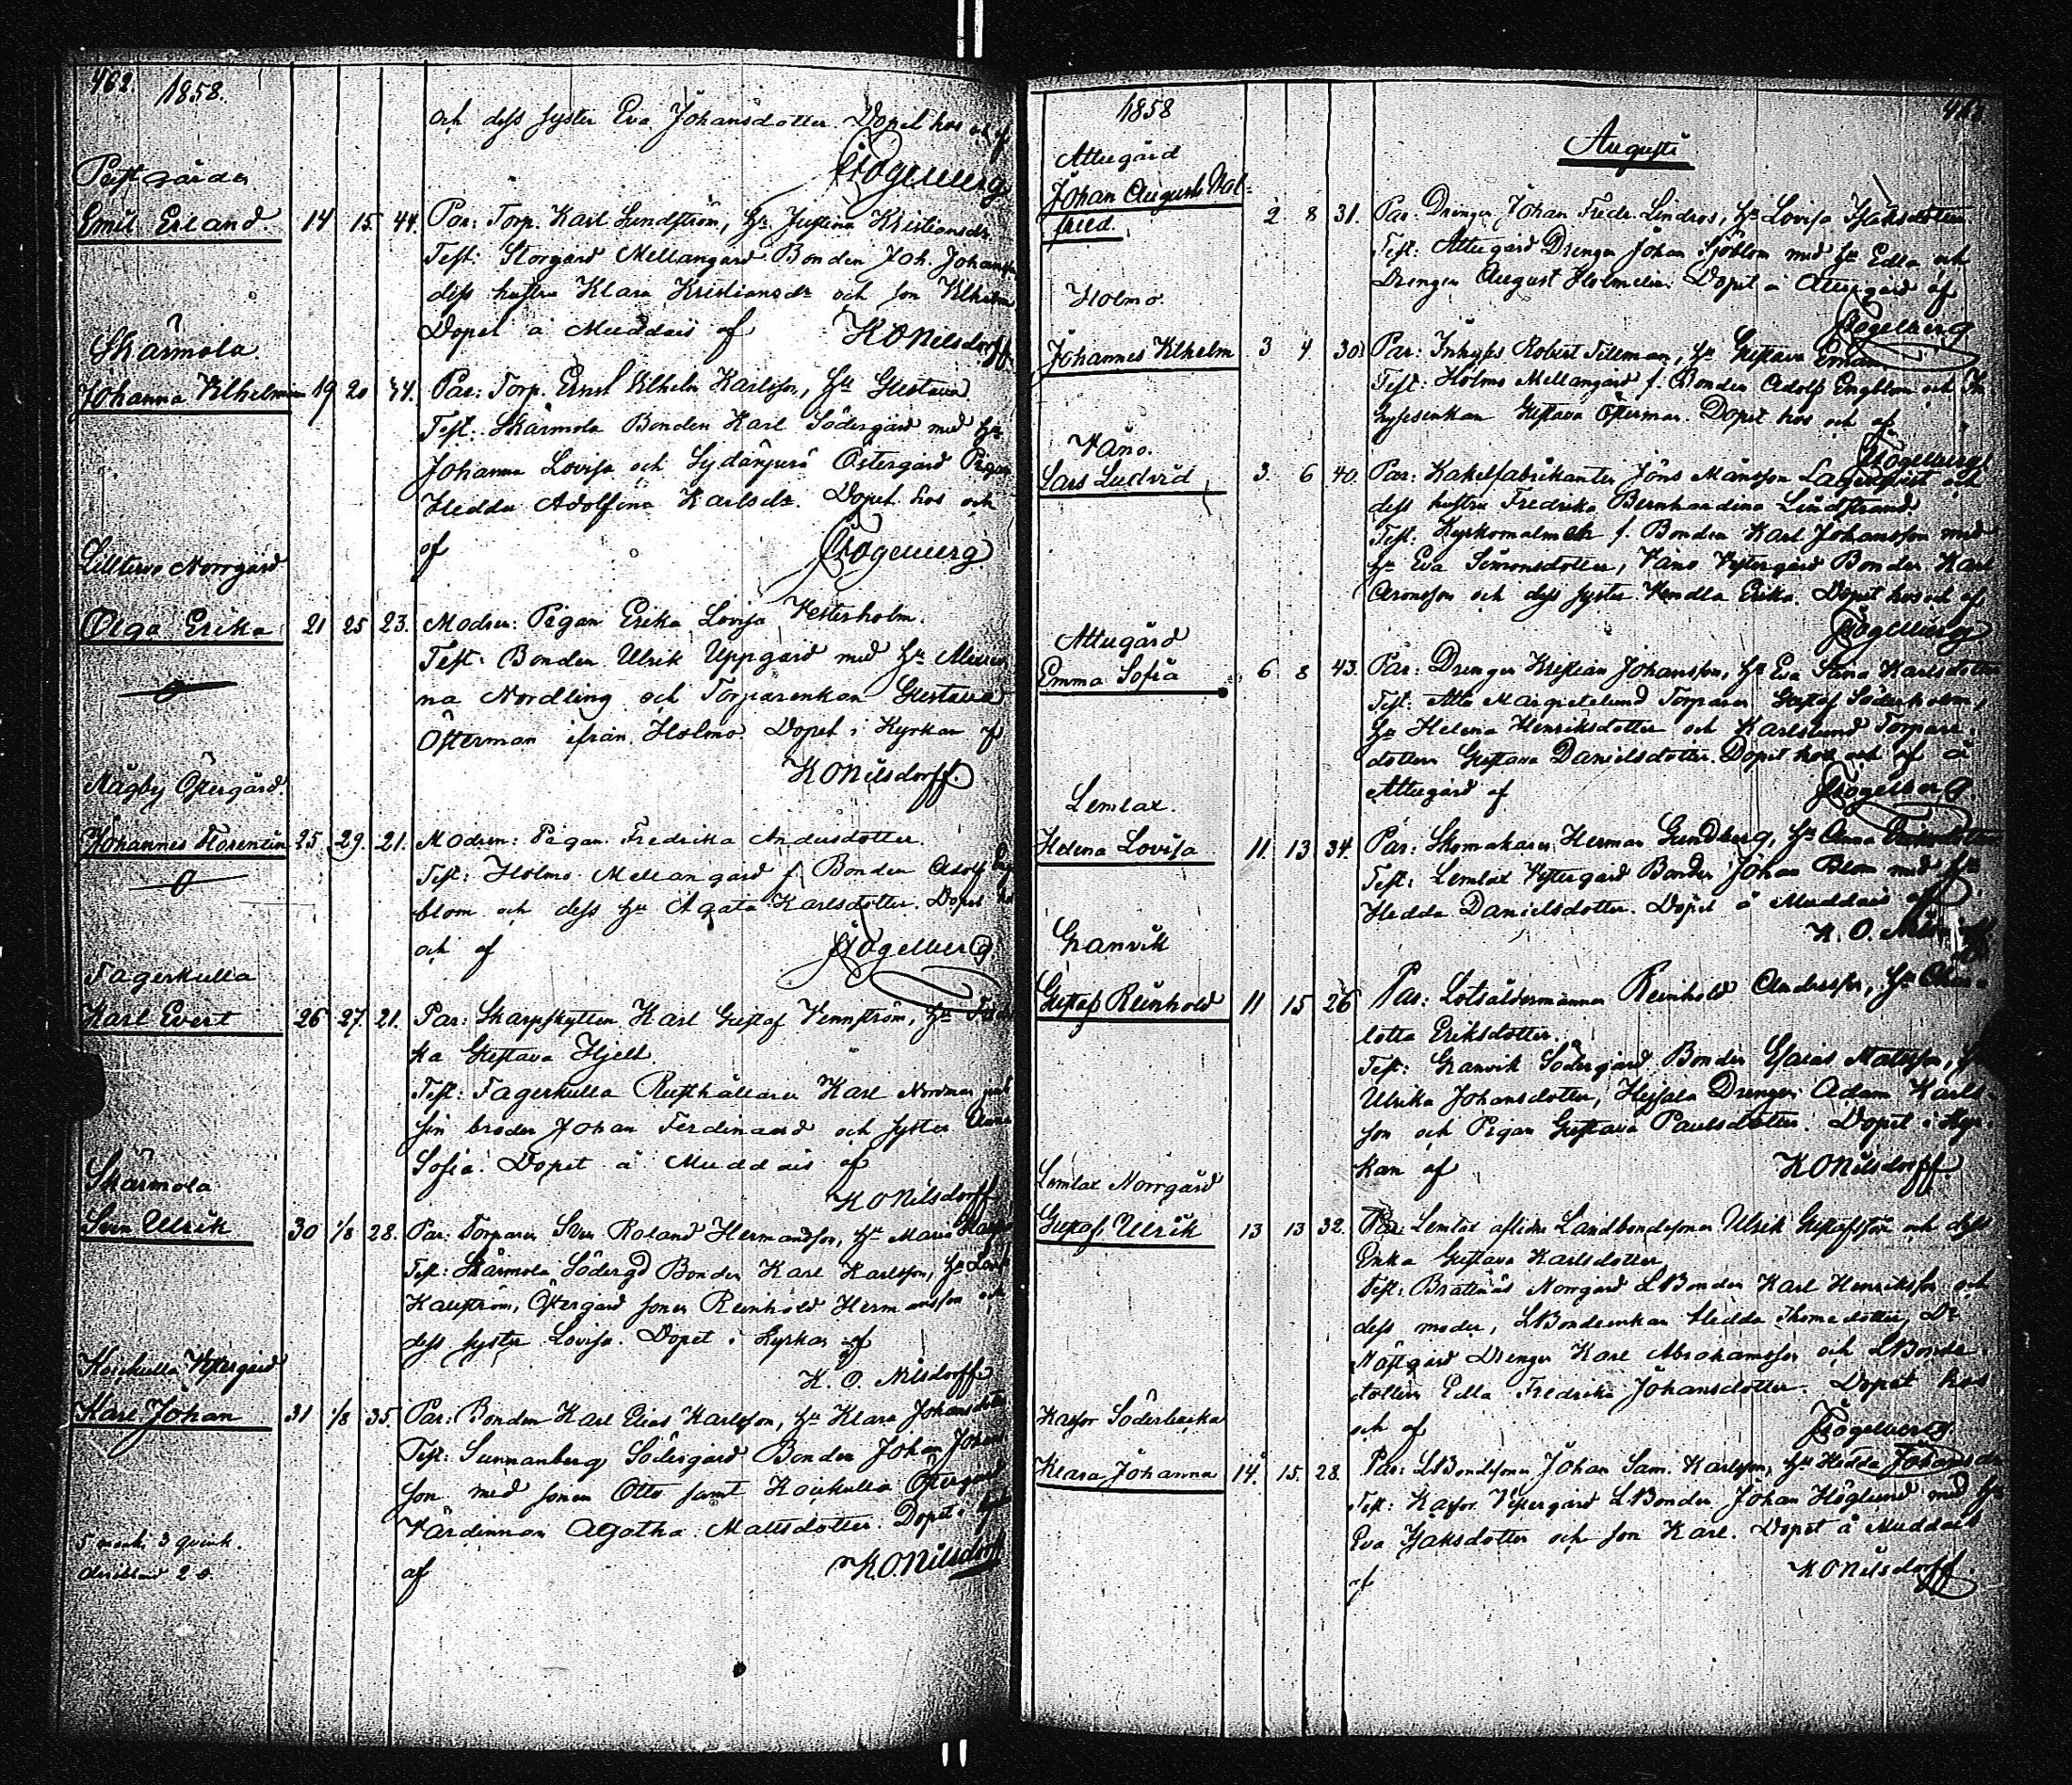 462.
1858.
och dess syster Eva Johansdotter. Dopet hos och af
Prestgården
Emil Erland. 14 15. 44. Par: Torp. Karl Lundström, Hu Justina Kristiansdr.
Test: Storgård Mellangård Bonden Joh. Johansson
dess hustru Klara Kristiansdr och son Vilhelm
Dopet å Muddais af K O Nilsdorff
Skärmola
Johanna Vilhelmina 19 20 34. Par: Torp. Ernst Vilhelm Karlsson, Hu Gustava
Test: Skärmola Bonden Karl Södergård med Hu
Johanna Lovisa och Sydänperä Östergård Pigan
Hedda Adolfina Karlsdr. Dopet hos och
af
Lilltervo Norrgård
Olga Erika 21 25 23. Modren: Pigan Erika Lovisa Vesterholm.
Test: Bonden Ulrik Uppgård med Hu
na Nordling och Torparenkan Gustava
Österman ifrån Holmo. Dopet i Kyrkan af
K O Nilsdorff.
Mågby Östergård.
Johannes Florentin 25 29. 21. Modren: Pigan Fredrika Andersdotter.
Test: Holmo Mellangård f. Bonden Adolf Eng
blom och dess Hu Agata Karlsdotter. Dopet hos
och af
Fagerkulla
Karl Evert 26 27. 21. Par: Skarpskytten Karl Gustaf Vennström, Hu
ka Gustava Hjelt.
Test: Fagerkulla Rusthållaren Karl Nordman med
sin broder Johan Ferdinand och syster
Sofia. Dopet å Muddais af
K O Nilsdorff
Skärmola
Sven Ulrik 30 1/8 28. Par: Torparen Sven Roland Hermansson, Hu Maria
Test: Skärmola Södergd Bonden Karl Karlsson, Hu
Kallström, Östergård sonen Reinhold Hermansson och
dess syster Lovisa. Dopet i Kyrkan af
K. O. Nilsdorff
Koirkulla Vestergård
Karl Johan 31 1/8 35. Par: Bonden Karl Elias Karlsson, Hu Klara Johansdotter
Test: Sunnanberg Södergård Bonden Johan Johans
son med sonen Otto samt Koirkulla Östergård
Värdinnan Agatha Mattsdotter. Dopet i
af K. O Nilsdorff
5 mank. 3 qvink.
deribland 2 o.
1858
463.
Augusti
Attugård
Johan August Val-
fried. 2 8 31. Par: Drengen Johan Fredr. Lindros, Hu Lovisa Isaksdotter
Test: Attugård Drengen Johan Sjöblom med Hu Edla och
Drengen August Holmelin. Dopet å Attugård af
Holmo.
Johannes Vilhelm 3 4 30. Par: Inhyses Robert Tilleman, Hu Gustava
Test: Holmo Mellangård f. Bonden Adolf Engblom och In
hysesenkan Gustava Österman. Dopet hos och af
Väno.
Lars Ludvid 3 6 40. Par: Kakelfabrikanten Jöns Månsson Lagerqvist och
dess hustru Fredrika Bernhardina Lindstrand
Test: Kyrkomalm f. Bonden Karl Johansson med
Hu Eva Simonsdotter, Väno Vestergård Bonden Karl
Aronsson och dess syster Vendla Erika. Dopet hos och af
Attugård
Emma Sofia 6 8 43. Par: Drengen Kristian Johansson, Hu Eva Stina Karlsdotter
Test: Attu Margretelund Torparen Gustaf Söderholm,
Hu Helena Henriksdotter och Karlslund Torpare-
dottern Gustava Danielsdotter. Dopet hos och af å
Attugård af
Lemlax.
Helena Lovisa 11 13 34. Par: Skomakaren Herman Gundberg, Hu Anna
Test: Lemlax Vestergård Bonden Johan Blom med Hu
Hedda Danielsdotter. Dopet å Muddais af
K. O. Nilsdorff
Granvik
Gustaf Reinhold 11 15 26 Par: Lotsåldermannen Reinhold Andersson, Hu
lotta Eriksdotter.
Test: Granvik Södergård Bonden Esaias Mattsson, Hu
Ulrika Johansdotter, Heisala Drengen Adam Karls-
son och Pigan Gustava Paulsdotter. Dopet i Kyr-
kan af K O Nilsdorff.
Lemlax Norrgård
Gustaf Ulrik 13 13 32. Par: Lemlax aflidne Landbondesonen Ulrik Gustafsson och dess
Enka Gustava Karlsdotter
Test: Brattnäs Norrgård LBonden Karl Henriksson och
dess moder, LBondeenkan Hedda Thomedotter, Do
Nästgård Drengen Karl Abrahamsson och LBonde-
dottern Edla Fredrika Johansdotter. Dopet hos
och af
Kassor Söderbacka
Klara Johanna 14. 15. 28. Par: LBondesonen Johan Sam. Karlsson, Hu Hedda Johansdr
Test: Kassor Vestergård LBonden Johan Höglund med Hu
Eva Isaksdotter och son Karl. Dopet å Muddais
af K O Nilsdorff.